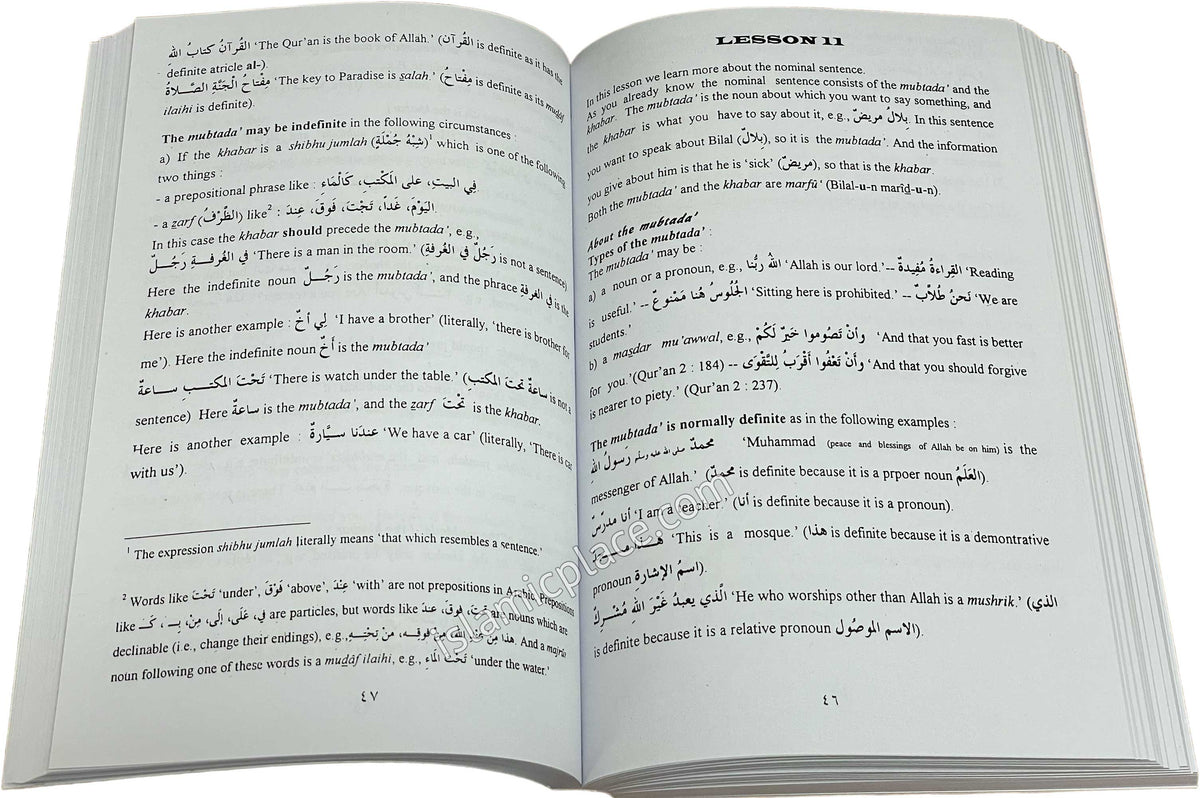 LESSON 11
In this lesson we learn more about the nominal sentence.
As you already know the nominal sentence consists of the mubtada' and the
khabar. The mubtada' is the noun about which you want to say something, and
the khabar is what you have to say about it, e.g., بِلالٌ مريضٌ. In this sentence
you want to speak about Bilal (بِلالٌ), so it is the mubtada'. And the information
you give about him is that he is 'sick' (مريضٌ), so that is the khabar.
Both the mubtada' and the khabar are marfû (Bilal-u-n marîd-u-n).
About the mubtada'
Types of the mubtada' :
The mubtada' may be :
a) a noun or a pronoun, e.g., اللهُ رَبُّنا 'Allah is our lord.'-- القِراءةُ مُفِيدةٌ 'Reading
is useful.' -- الجُلُوسُ هُنا مَمْنُوعٌ 'Sitting here is prohibited.' -- نَحنُ طُلاَّبٌ 'We are
students.'
b) a masdar mu'awwal, e.g., وأنْ تَصُوموا خَيرٌ لَكُمْ 'And that you fast is better
for you.'(Qur'an 2 : 184) -- وأنْ تَعْفُوا أقْرَبُ لِلتَّقْوَى 'And that you should forgive
is nearer to piety.' (Qur'an 2 : 237).
The mubtada' is normally definite as in the following examples :
محمدٌ صلى الله عليه وسلم رَسولُ اللهِ 'Muhammad (peace and blessings of Allah be on him) is the
messenger of Allah.' (محمدٌ is definite because it is a prpoer noun العَلَمُ).
أنا مدرّسٌ 'I am a teacher.' (أنا is definite because it is a pronoun).
هذا مسجدٌ 'This is a mosque.' (هذا is definite because it is a demontrative
pronoun اسمُ الإشارةِ).
الَّذي يعبدُ غَيْرَ اللهِ مُشْرِكٌ 'He who worships other than Allah is a mushrik.' (الذي
is definite because it is a relative pronoun الاسم الموصُول).
٤٦
القُرآنُ كتابُ اللهِ 'The Qur'an is the book of Allah.' (القُرآن is definite as it has the
- definite atricle al-).
مِفْتاحُ الْجَنَّةِ الصَّلاةُ 'The key to Paradise is salah.' (مِفْتاحُ is definite as its mudâf
ilaihi is definite).
The mubtada' may be indefinite in the following circumstances :
a) If the khabar is a shibhu jumlah (شِبْهُ جُمْلَةٍ)¹ which is one of the following
two things :
- a prepositional phrase like : فِي البيتِ، على المَكْتبِ، كَالْمَاءِ.
- a zarf (الظَّرْفُ) like² : اليَوْمَ، غَداً، تَحْتَ، فَوقَ، عِندَ.
In this case the khabar should precede the mubtada', e.g.,
في الغُرفةِ رَجُلٌ 'There is a man in the room.' (رَجُلٌ في الغُرفةِ is not a sentence)
Here the indefinite noun رَجُلٌ is the mubtada', and the phrase في الغرفةِ is the
khabar.
Here is another example : لِي أخٌ 'I have a brother' (literally, 'there is brother for
me'). Here the indefinite noun أخٌ is the mubtada'
تَحْتَ المكتبِ ساعةٌ 'There is watch under the table.' (ساعةٌ تحتَ المكتبِ is not a
sentence) Here ساعةٌ is the mubtada', and the zarf تحْتَ is the khabar.
Here is another example : عندَنا سيَّارةٌ 'We have a car' (literally, 'There is car
with us').
¹ The expression shibhu jumlah literally means 'that which resembles a sentence.'
² Words like تَحْتَ 'under', فَوْقَ 'above', عِنْدَ 'with' are not prepositions in Arabic. Prepositions
like في، عَلَى، إلَى، مِنْ، بِـ، كَـ are particles, but words like تحت، فوق، عند are nouns which are
declinable (i.e., change their endings), e.g., هذا مِنْ عِنْدِ اللهِ، مِنْ فوقِهِ، مِنْ تحتِهِ. And a majrûr
noun following one of these words is a mudâf ilaihi, e.g., تَحْتَ الْمَاءِ 'under the water.'
٤٧
islamicplace.com